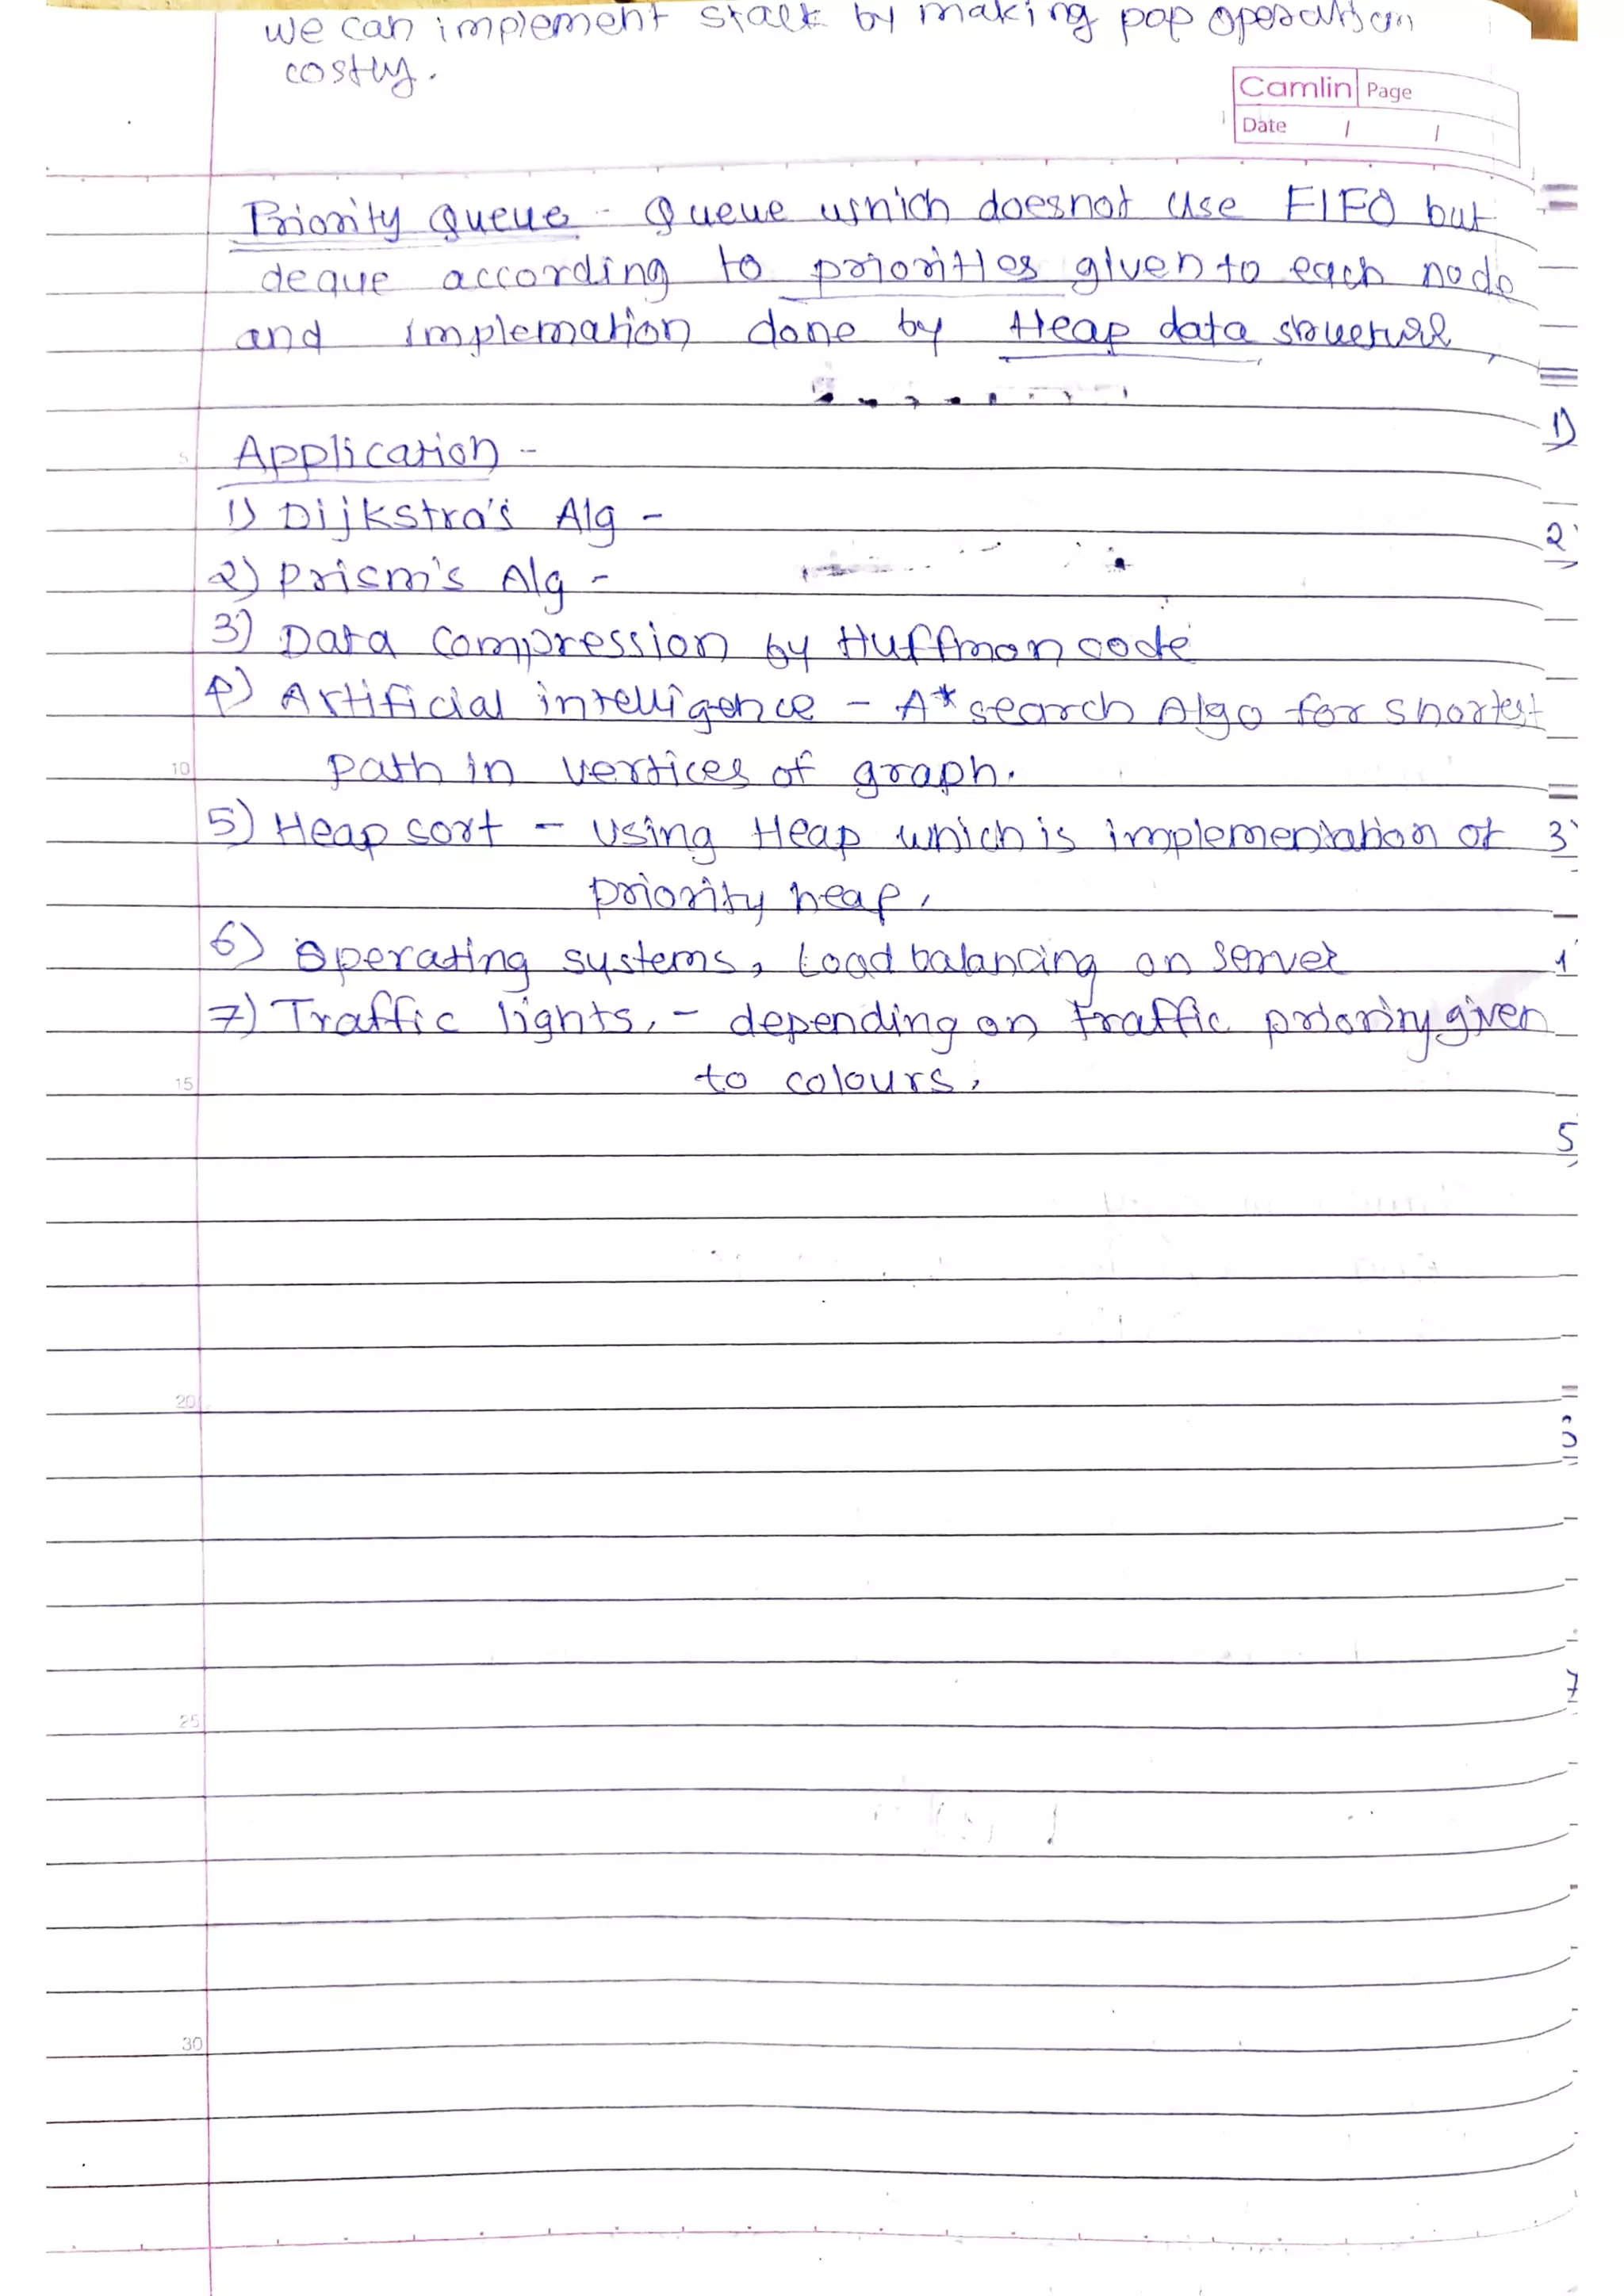 we can implement stack by making pop operation
costly.
Camlin Page
Date / /
Priority Queue - Queue which doesnot use FIFO but
deque according to priorities given to each node
and implemation done by Heap data structure,
Application -
1) Dijkstra's Alg -
2) Prism's Alg -
3) Data compression by Huffman code
4) Artificial intelligence - A* search Algo for shortest
path in vertices of graph.
5) Heap sort - using Heap which is implementation of
priority heap,
6) Operating systems, Load balancing on server
7) Traffic lights, - depending on traffic priority given
to colours,
5
10
15
20
25
30
1)
2
3
1
5
3
7